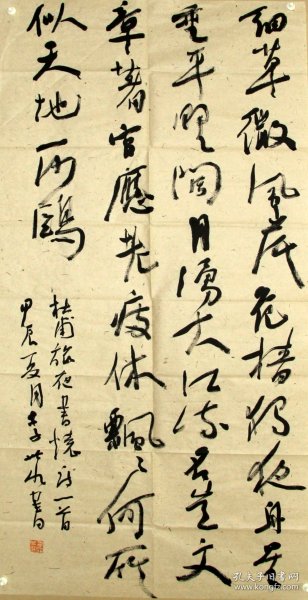 細草微風岸危檣獨夜舟星
垂平野闊月湧大江流名豈文
章著官應老病休飄〻何所
似天地一沙鷗
杜甫旅夜書懷詩一首
甲辰夏月李書
孔夫子旧书网